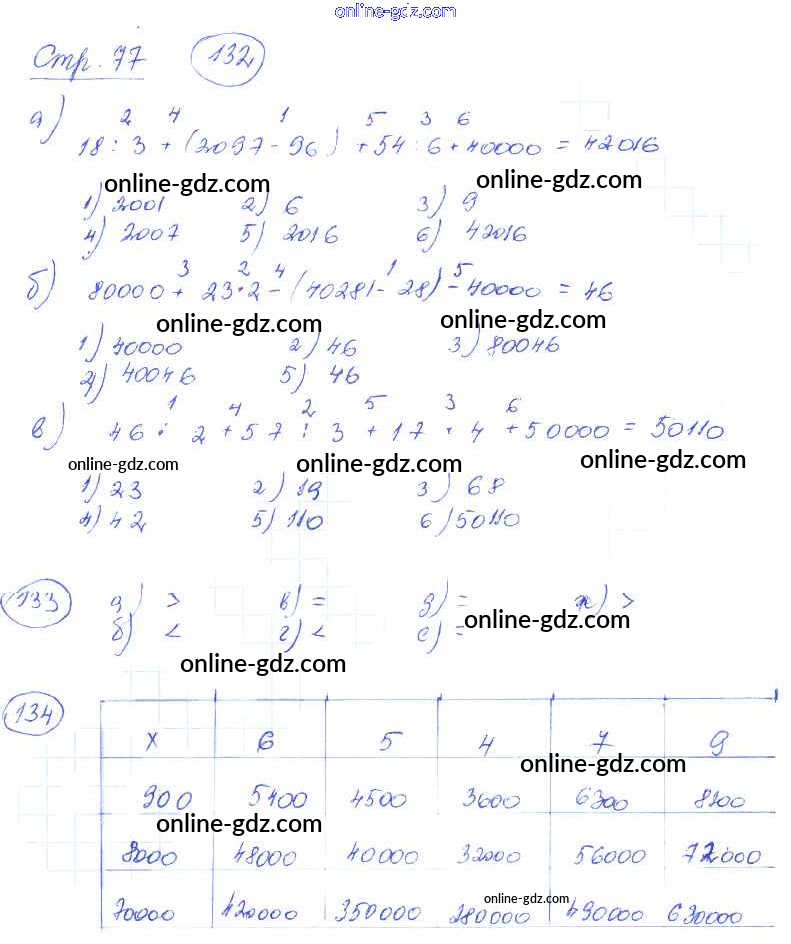 online-gdz.com
Стр. 77 132
а) 2 4 1 5 3 6
18 : 3 + (2097 - 96) + 54 : 6 + 40000 = 42016
online-gdz.com online-gdz.com
1) 2001 2) 6 3) 9
4) 2007 5) 2016 6) 42016
б) 3 2 4 1 5
80000 + 23 · 2 - (40281 - 28) - 40000 = 46
online-gdz.com online-gdz.com
1) 40000 2) 46 3) 80046
4) 40046 5) 46
в) 1 4 2 5 3 6
46 : 2 + 57 : 3 + 17 · 4 + 50000 = 50110
online-gdz.com online-gdz.com online-gdz.com
1) 23 2) 19 3) 68
4) 42 5) 110 6) 50110
133 а) > в) = д) = ж) >
б) < г) < е) =
online-gdz.com
online-gdz.com
134
x 6 5 4 7 9
online-gdz.com
900 5400 4500 3600 6300 8100
online-gdz.com
8000 48000 40000 32000 56000 72000
online-gdz.com
70000 420000 350000 280000 490000 630000